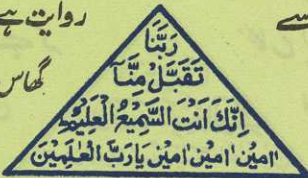 سے
روایت ہے
گھاس
رَبَّنَا
تَقَبَّلْ مِنَّا
اِنَّكَ اَنْتَ السَّمِيْعُ الْعَلِيْمُ
اٰمِيْن اٰمِيْن اٰمِيْن يَا رَبَّ الْعٰلَمِيْنَ